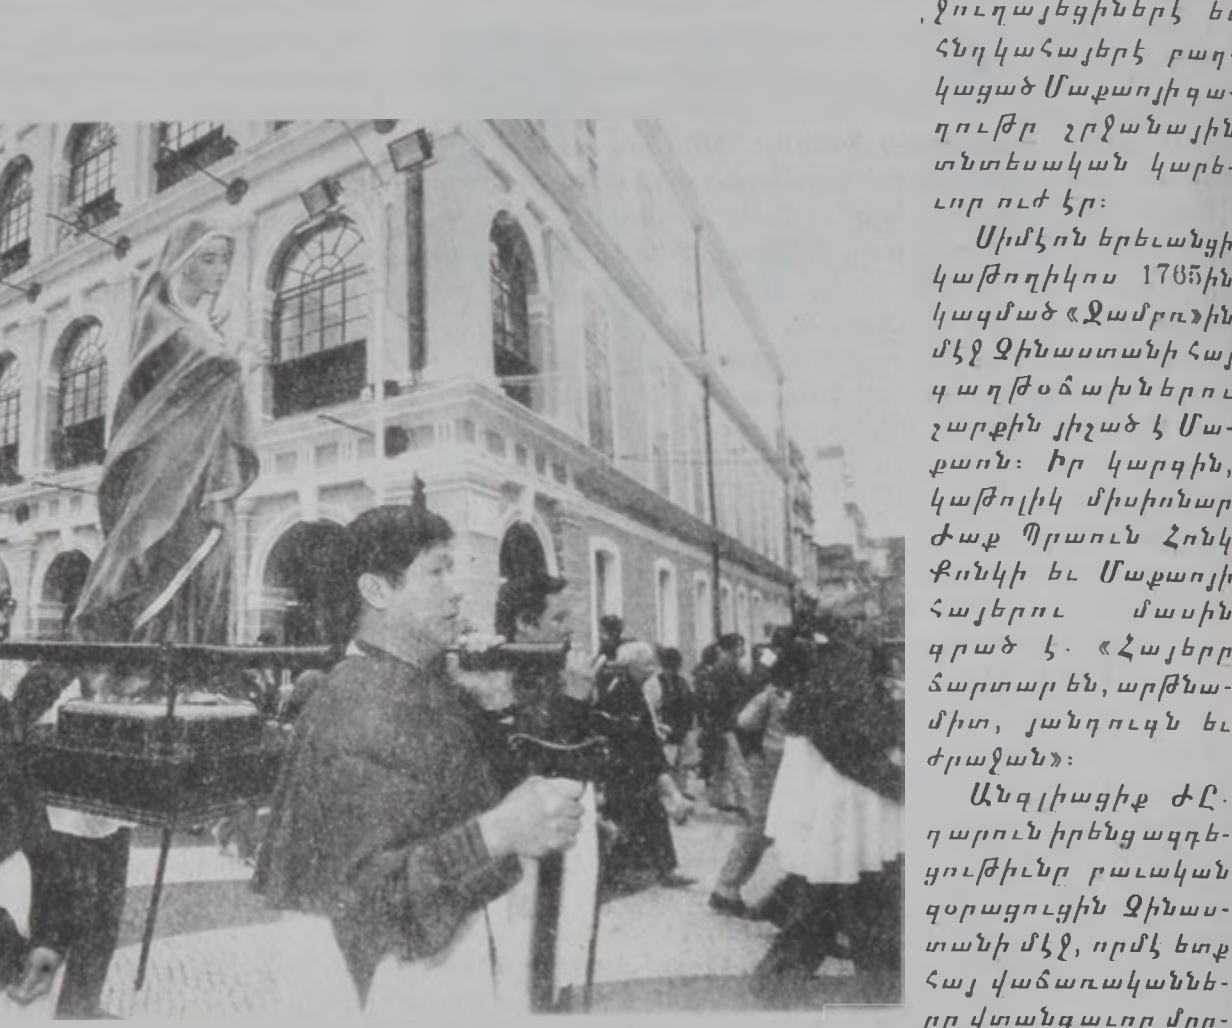 Ջուղայեցիներէ եւ
Հնդկահայերէ բաղ-
կացած Մաքաոյի գա-
ղութը շրջանային
տնտեսական կարե-
ւոր ուժ էր։
Սիմէոն Երեւանցի
կաթողիկոս 1765ին
կազմած «Ջամբռ»ին
մէջ Չինաստանի հայ
գաղթօճախներու
շարքին յիշած է Մա-
քաոն։ Իր կարգին,
կաթոլիկ միսիոնար
Ժաք Պրաուն Հոնկ
Քոնկի եւ Մաքաոյի
հայերու մասին
գրած է. «Հայերը
ճարտար են, արթնա-
միտ, յանդուգն եւ
ժրաջան»։
Անգլիացիք ԺԸ.
դարուն իրենց ազդե-
ցութիւնը բաւական
զօրացուցին Չինաս-
տանի մէջ, որմէ ետք
հայ վաճառականնե-
րը վտանգաւոր մրռ-